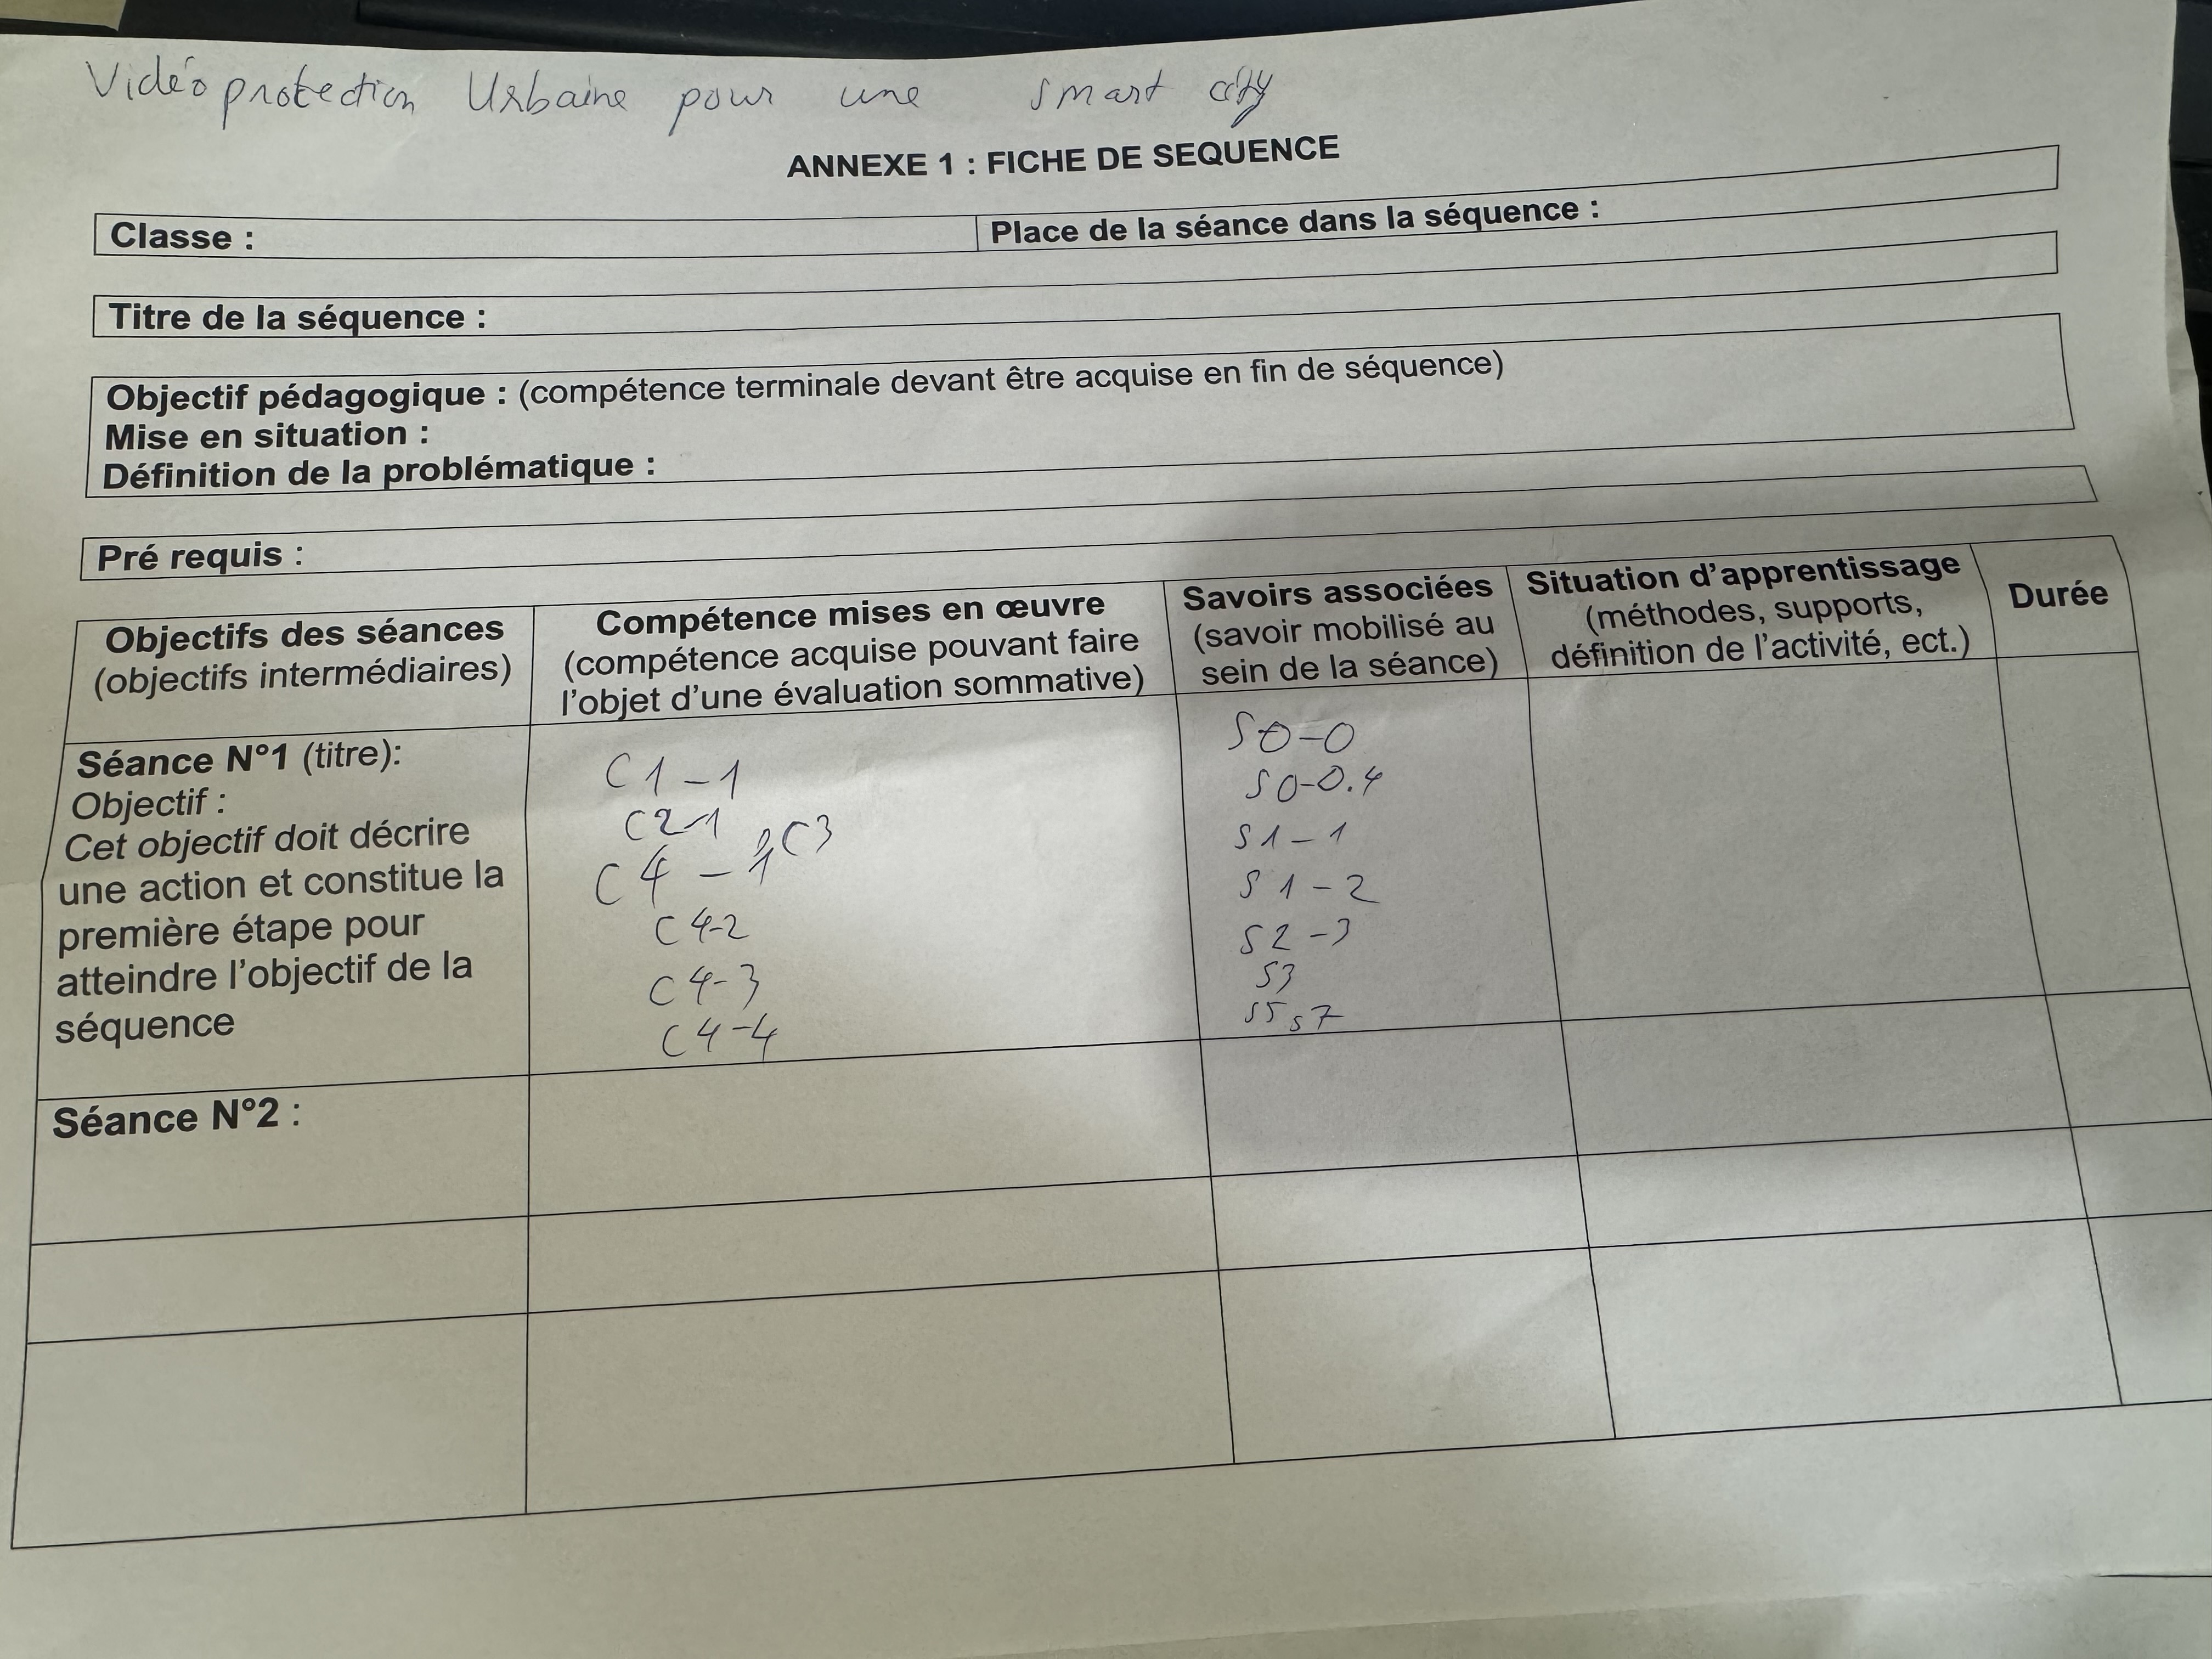 Vidéo protection Urbaine pour une smart city
ANNEXE 1 : FICHE DE SEQUENCE
Classe :
Place de la séance dans la séquence :
Titre de la séquence :
Objectif pédagogique : (compétence terminale devant être acquise en fin de séquence)
Mise en situation :
Définition de la problématique :
Pré requis :
Objectifs des séances
(objectifs intermédiaires)
Compétence mises en œuvre
(compétence acquise pouvant faire
l'objet d'une évaluation sommative)
Savoirs associées
(savoir mobilisé au
sein de la séance)
Situation d'apprentissage
(méthodes, supports,
définition de l'activité, ect.)
Durée
Séance N°1 (titre):
Objectif :
Cet objectif doit décrire
une action et constitue la
première étape pour
atteindre l'objectif de la
séquence
C1-1
C2-1
C4-1 C3
C4-2
C4-3
C4-4
S0-0
S0-0.4
S1-1
S1-2
S2-3
S3
S5 S7
Séance N°2 :